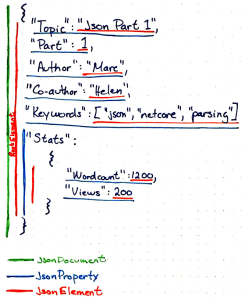 {
"Topic": "Json Part 1",
"Part": 1,
"Author": "Marc",
"Co-author": "Helen",
"Keywords": ["json", "netcore", "parsing"]
"Stats":
{
"Wordcount": 1200,
"Views": 200
}
}
RootElement
JsonDocument
JsonProperty
JsonElement